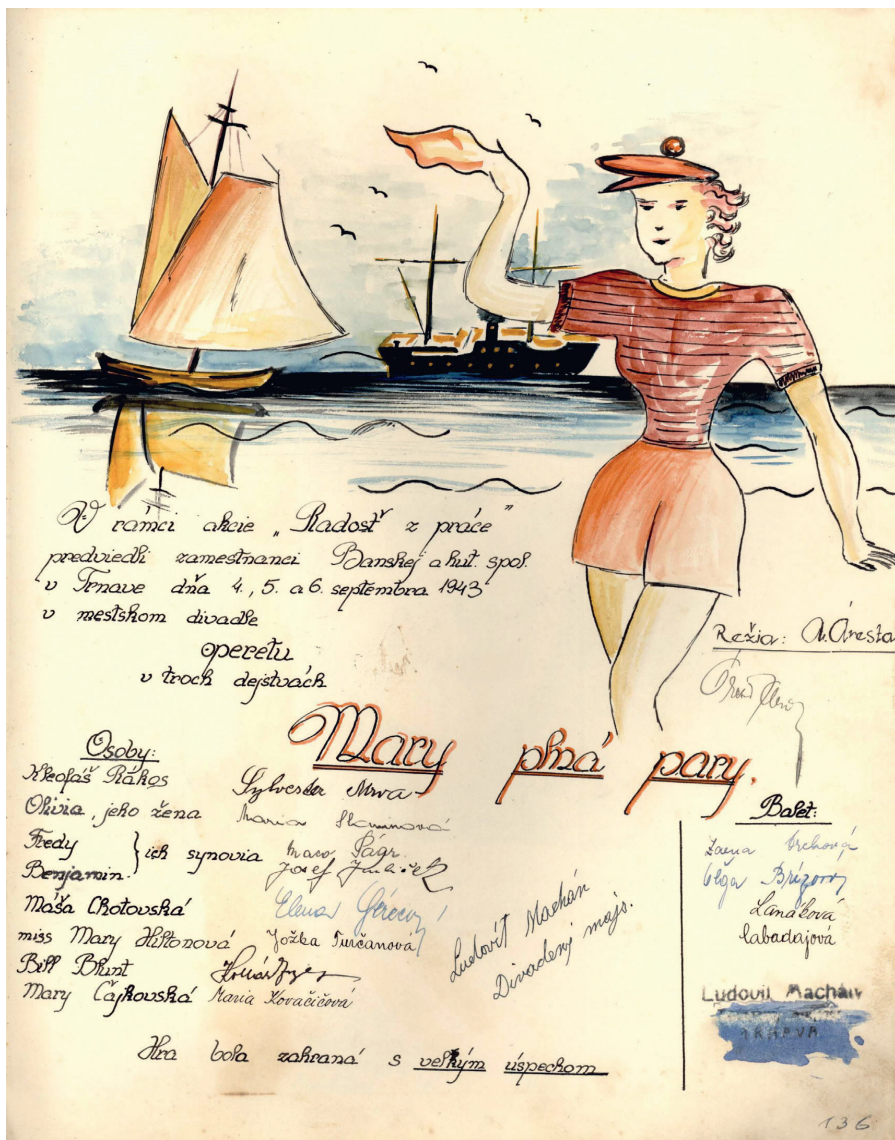 V rámci akcie „Radosť z práce"
predviedli zamestnanci Banskej a hut. spol.
v Trnave dňa 4., 5. a 6. septembra 1943
v mestskom divadle
operetu
v troch dejstvách
Réžia: A. Aresta
Mary plná pary.
Osoby:
Kleofáš Rákos Sylvester Mrva
Olivia, jeho žena Maria
Fredy
} ich synovia
Benjamin. Josef
Máša Chotovská Elena
miss Mary Hiltonová Jožka Turčanová
Bill Blunt
Mary Čajkovská Maria Kovačičová
Ludovít Machán
Divadený majs.
Balet:
Oľga Brízová
Lanáková
Labadajová
Ľudovít Machán
TRNAVA
Hra bola zahraná s veľkým úspechom
136